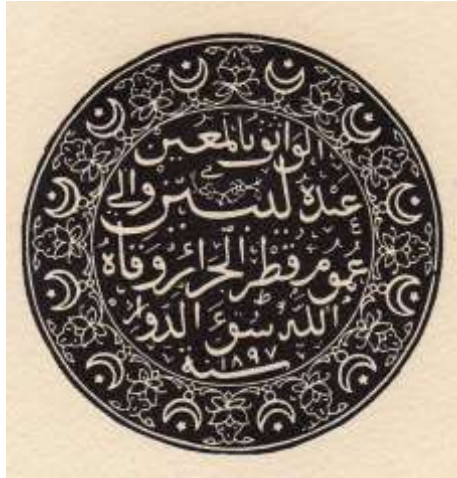 الواثق بالمعين
عبده لبين والي
عموم قطر الجزائر وقاه
الله سوء الدوائر
سنة ١٨٩٧